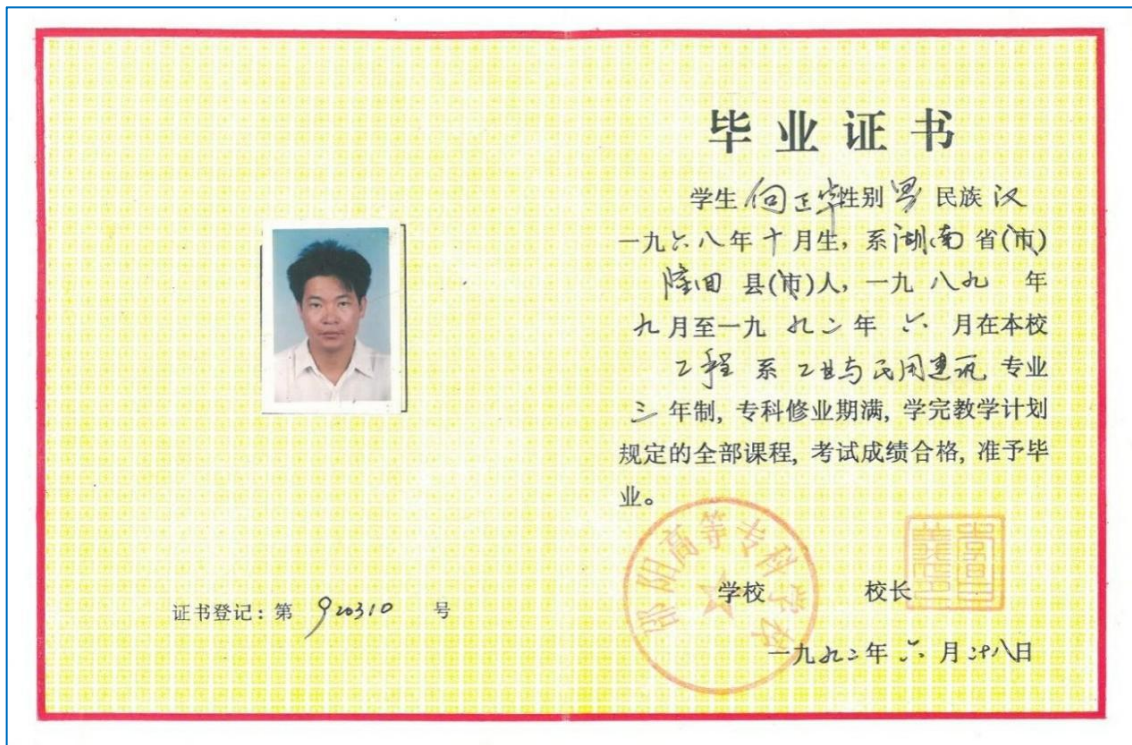 毕业证书
学生 何正华性别 男 民族 汉
一九六八年十月生，系湖南省(市)
隆回 县(市)人，一九 八九 年
九月至一九 九二年 六 月在本校
工程 系 工业与民用建筑 专业
三 年制，专科修业期满，学完教学计划
规定的全部课程，考试成绩合格，准予毕
业。
邵阳高等专科学校
学校 校长
一九九二年 六 月 廿八日
证书登记：第 920310 号